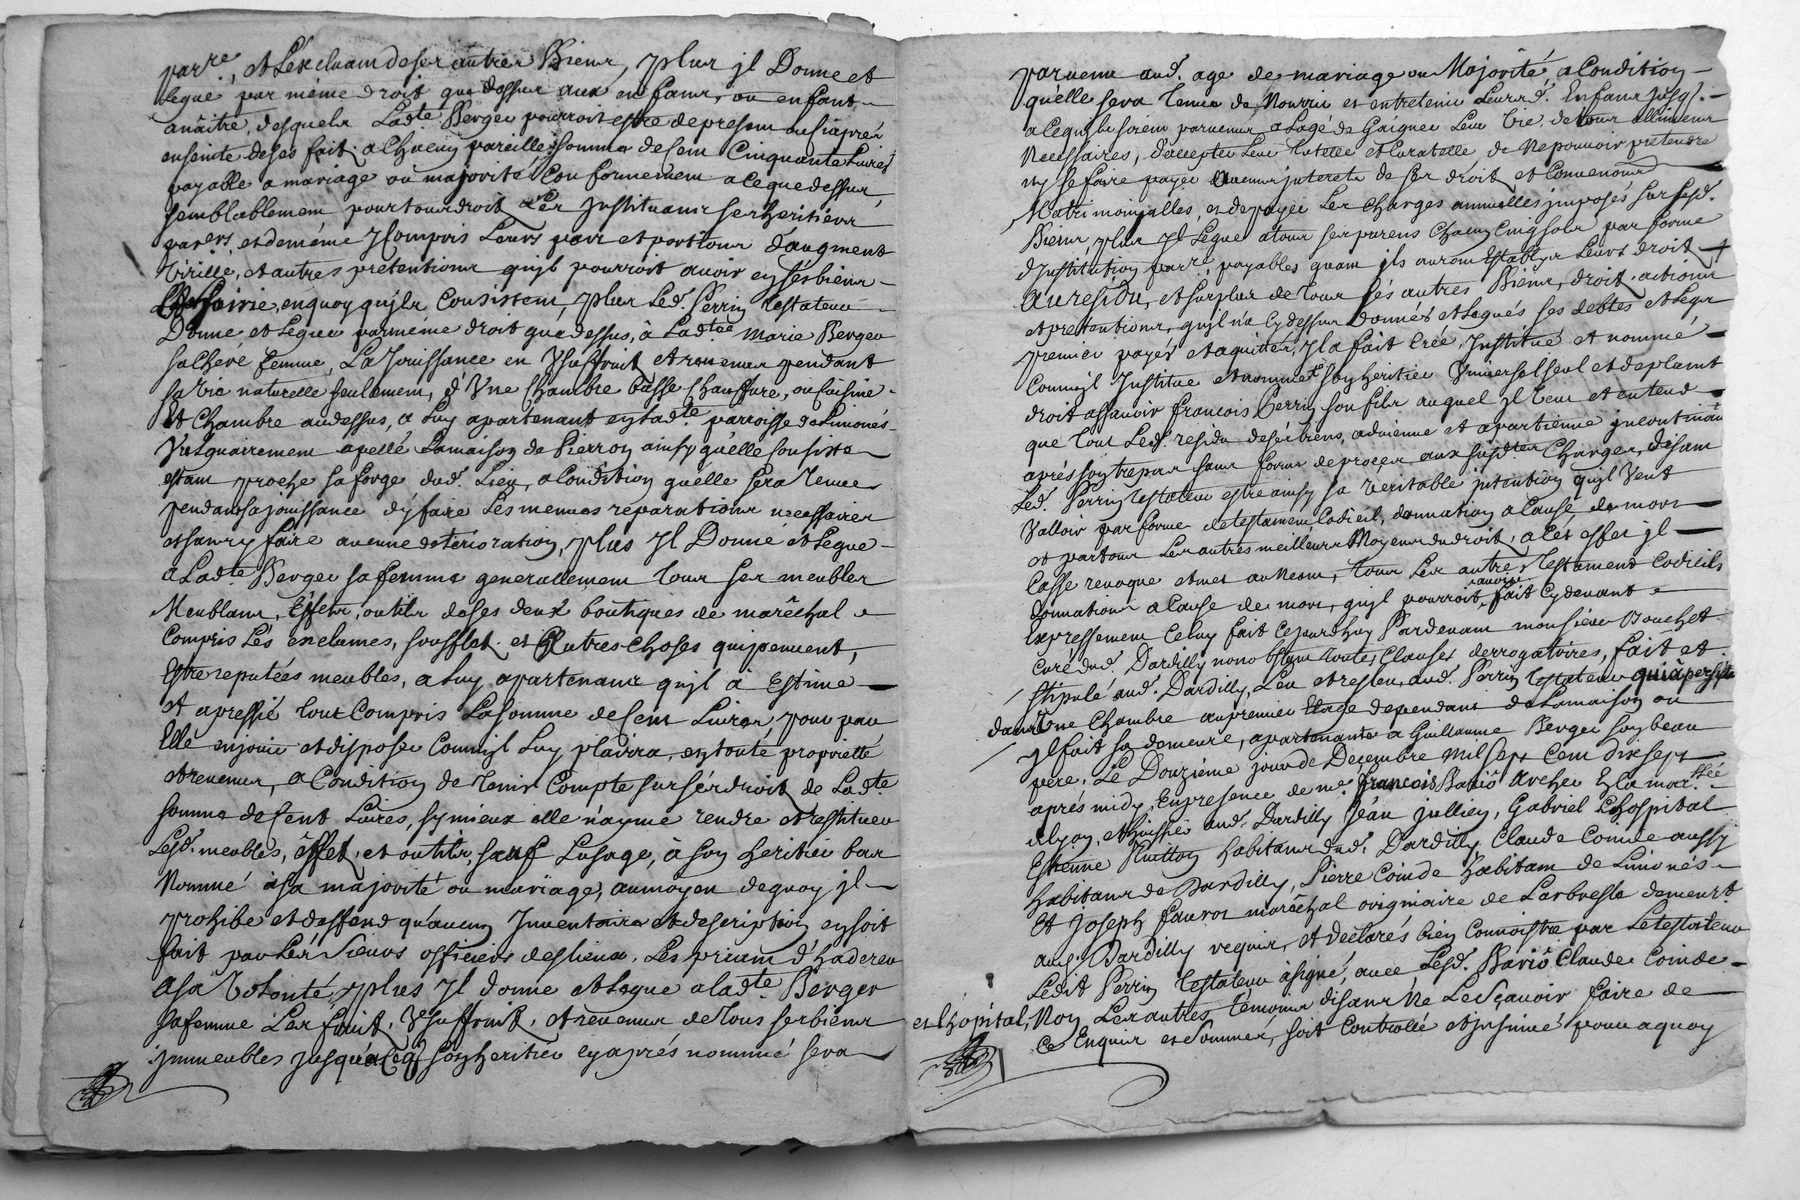 parre, et Lexcluam de ses autres Biens, plus jl Donne et
legue par méme droit que dessus aux enfans, ou enfant
a nâitre, desquels Ladte Berger pourroit estre de present ou siaprés
enseinte de ses fait, a Chacun pareille somme de Cent Cinquante Livres
payable a mariage ou majorité Conformement a ce que dessus,
semblablement pour tour droit Les Jnstituant ses heritiers
parers, et deméme y Compris Leurs part et portions d'augment
Virille, et autres pretentions qu'jl pourroit avoir en sés biens
en quoy qu'jls Consistent, plus Led. Perrin testateur
Donne et Legue par méme droit que dessus, â Ladtte Marie Berger
sa Cheré femme, La Jouissance en Vsuffruit et revenus pendant
sa vie naturelle seulement, d'Vne Chambre basse Chauffure, ou Cuisine
Et Chambre au dessus, a Luy apartenant en ladte parroisse de Limonés
Vulguairement apellé Lamaison de Pierron ainsy qu'elle Consiste
estant proche sa forge dud. Lieu, a Condition qu'elle sera tenue
pendant sa jouissance d'y faire Les menues reparations necessaires
et sans y faire aucune deterioration, plus Jl Donne et Legue
a Ladte Berger sa femme generallement tour ses meubles
Meublans, Effets, outils de ses deux boutiques de maréchal
Compris Lés enclumes, soufflet et Autres Choses qui peuvent,
Estre reputées meubles, a Luy apartenant qu'jl â Estime
et apressié tout Compris La somme de Cent Livres pour par
Elle en jouir et disposer Comm'jl Luy plairra, en touté proprietté
et revenus, a Condition de tenir Compte sur sés droit de Ladte
somme de Cent Livres, sy mieux elle n'ayme rendre et restituer
Lesd. meubles, effet, et outils, sauf Lusage, à son heritier bas
Nommé à sa majorité ou mariage, au moyen de quoy jl
prohibe et deffend qu'aucun Jnventaire et description en soit
fait par Lés Sieurs officiers des lieux, Les priant d'haderer
a sa Volonté, plus jl donne et Legue a ladte Berger
sa femme Les fruit, Vsuffruit, et revenus de tous ses biens
jmmeubles jusqu'a Ceq. son heritier cy aprés nommé sera
parvenu aud. age de mariage ou Majorité, a Condition
qu'elle sera tenue de Nourrir et entretenir Leursd. Enfans jusq.
a Ceq'jls soient parvenus a Lagé de Gaigner Leur Vie, de tour allimens
Necessaires, d'accepter Leur tutelle et Curatelle de Ne pouvoir pretendre
ny se faire payer Aucuns jnterets de ses droit et Convenons
Matrimoinialles, et de payer Les Charges annuelles jmposés sur sesd.
Biens, plus Jl Legue a tour ses parens Chacun Cinq sols par forme
d'Jnstitution parre, payables quant jls auront Establyr Leurs droit
Au residu, et surplus de tour sés autres Biens, droit, actions
et pretentions, qu'jl n'a Cydessus donnés et legués ses debtes et Legs
premier payés et aquittés, jl a fait Créé, Jnstitué et nommé
Comm'jl Jnstitue et nomme son heritier Vniversel seul et de plaint
droit assavoir francois Perrin son fils auquel jl Veut et entend
que tout Led. residu de sés biens, advienne et apartienne jncontinant
aprés son trepas sans forme de procez aux susdtes Charges, disant
Led. Perrin testateur estre ainsy sa Veritable jntention qu'jl Veut
Valloir par forme de testament Codicil, donnation a Cause de mort
et par tour Les autres meilleurs Moyens du droit, a Cet effet jl
Casse revoque et met au Neant, tour Les autres testament Codicils
donnations a Cause de mort, qu'jl pourroit avoir fait Cydevant
Expressement Celuy fait Cejourdhuy Pardevant monsieur Bouchet
Curé dud. Dardilly nonobstant toutes Clauses derrogatoires, fait et
stipulé aud. Dardilly, Leu et releu, aud. Perrin testateur qui à persisté
dans Vne Chambre au premier Etage dependant de Lamaison ou
jl fait sa demeure, apartenante a Guillaume Berger son beau
pere, Le Douzième jour de Decembre mil sept Cent dix sept
aprés midy, En presence de me. francois Bariô archer En la mar.ssée
de Lyon, et huissier aud. Dardilly Jean jullien, Gabriel Lhospital
Estienne habitans dud. Dardilly, Claude Coinde aussy
habitans de Dardilly, Pierre Coinde habitant de Limonés
Et joseph fauror maréchal originaire de Larbresle demeurt.
aud. Dardilly requis, et declarés bien Connoistre par Le testateur
Ledit Perrin testateur à signé, avec Lesd. Bariô Claude Coinde
et Lhopital, Non Les autres témoins disant Ne Le Sçavoir faire de
Ce Enquis et Sommés, soit Controllé et jnsinué pour a quoy